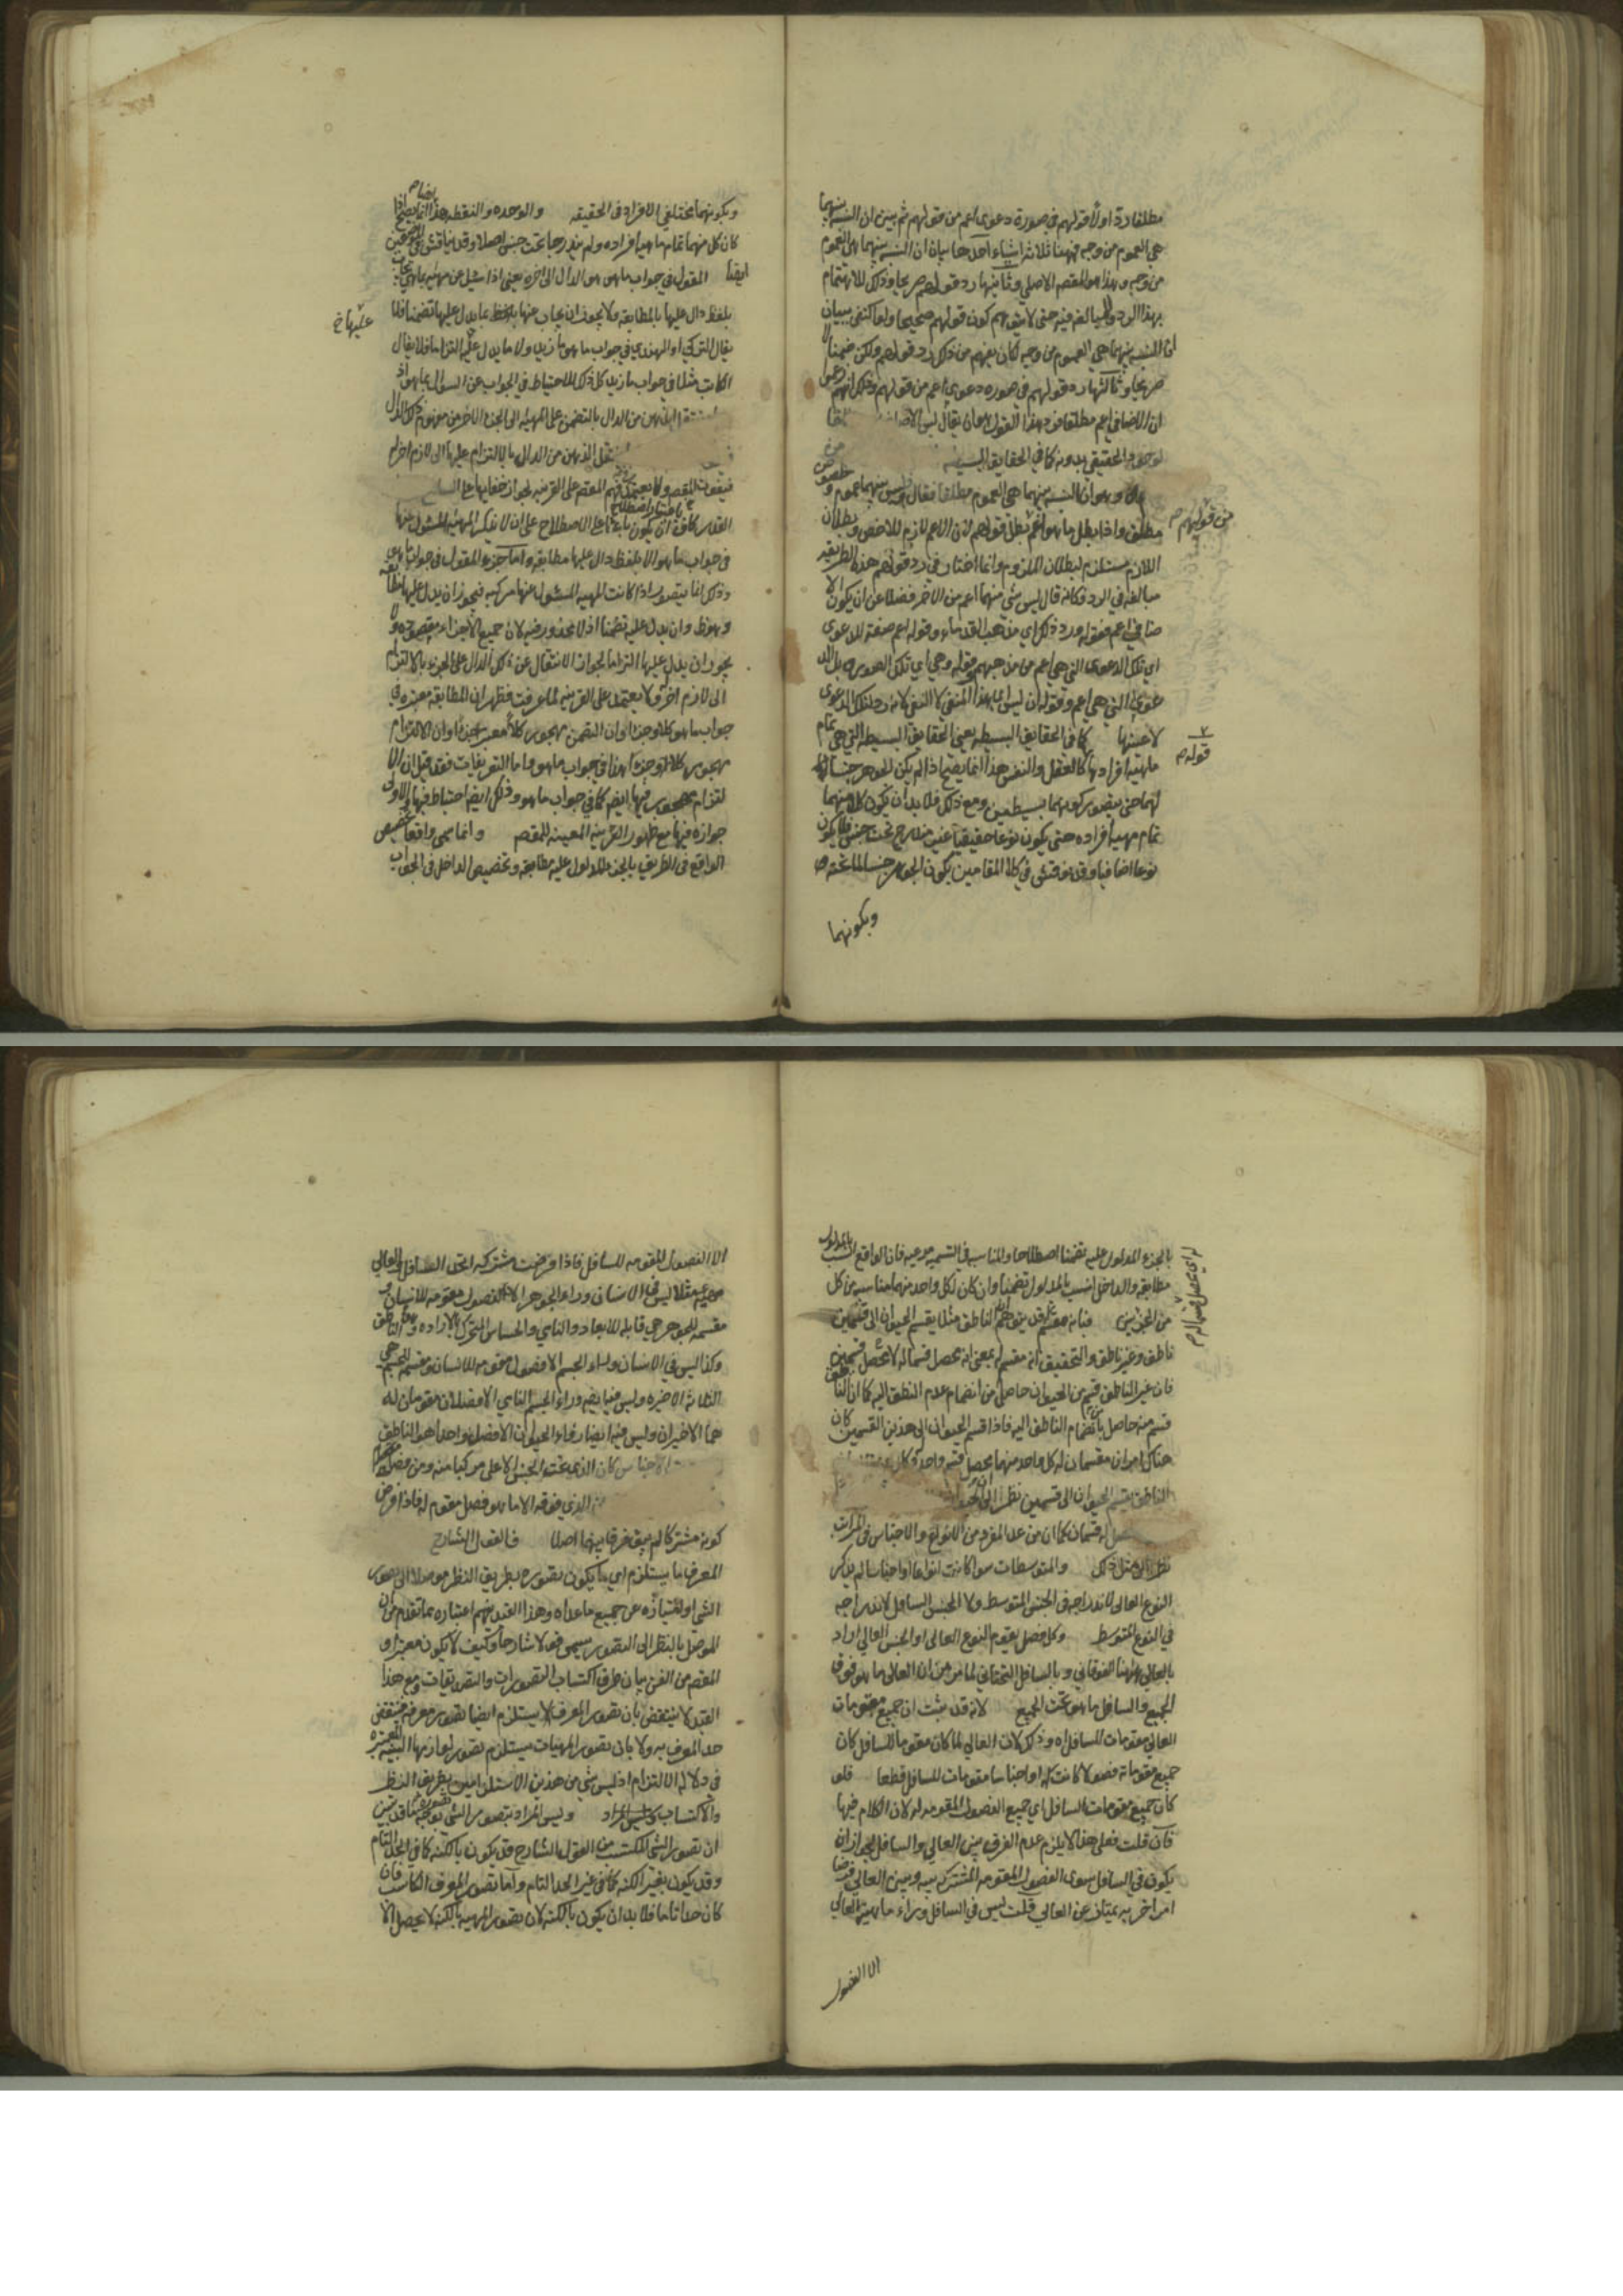 مطلقا ردّ اولًا قولهم في صورة دعوى اعم من قولهم ثم بين ان النسبة بينهما
هي العموم من وجه فههنا ثلاثة اشياء احدها بيان ان النسبة بينهما هي العموم
من وجه وهذا هو المقصد الاصلي وثانيها رد قولهم صريحا وذلك للاهتمام
بهذا الرد والمبالغة فيه حتى لا يتوهم كون قولهم صحيحا ولو اكتفى ببيان
ان النسبة بينهما هي العموم من وجه كان يفهم من ذلك رد قولهم ولكن ضمنا لا
صريحا وثالثها رد قولهم في صورة دعوى اعم من قولهم وذلك انهم
ان الاضافي اعم مطلقا فرد هذا القول هو ان يقال ليس الاضافي
لوجود الحقيقي بدونه كما في الحقايق البسيطة
وهو ان النسبة بينهما هي العموم مطلقا فقال ليس بينهما عموم وخصوص
مطلق واذا بطل ما هو اعم بطل قولهم لان الاعم لازم للاخص وبطلان
من قولهم
اللازم يستلزم بطلان الملزوم وانما اختار في رد قولهم هذه الطريقة
مبالغة في الرد فكانه قال ليس شئ منهما اعم من الآخر فضلا عن ان يكون الا
ضافي اعم فقوله ورد ذلك اي مذهب القدماء وقوله اعم صفة للدعوى
اي تلك الدعوى التي هي اعم من مذهبهم وقوله وهي اي تلك الصورة بل الد
عوى التي هي اعم وقوله ان ليس اه هذا المنفي لا النفي لانه رد لتلك الدعوى
لا عينها كما في الحقايق البسيطة يعني الحقايق البسيطة التي هي تمام
قوله
ماهية افرادها كالعقل والنفس هذا انما يصح اذا لم يكن الجوهر جنسا
لهما حتى يتصور كونهما بسيطين ومع ذلك فلا بد ان يكون كل منهما
تمام مهية افراده حتى يكون نوعا حقيقيا غير مندرج تحت جنس فلا يكون
نوعا اضافيا وقد نوقش في كلا المقامين بكون الجوهر جنسا لما تحته
وبكونهما
وبكونهما مختلفي الافراد في الحقيقة والوحدة والنقطة هذا انما يصح اذا
كان كل منهما تمام مهية افراده ولم يندرجا تحت جنس اصلا وقد يناقش في الموضعين
ايضا المقول في جواب ما هو هو الدال الى اخره يعني اذا سئل عن مهية بما هي يجاب
بلفظ دال عليها بالمطابقة ولا يجوز ان يجاب عنها بلفظ يدل عليها تضمنا فلا
عليها خ
يقال التركي او الهندي في جواب ما هو زيد ولا ما يدل عليها التزاما فلا يقال
الكاتب مثلا في جواب ما زيد كل ذلك للاحتياط في الجواب عن السؤال بما هو اذ
الذهن من الدال بالتضمن على المهية الى الجزء الآخر من مفهوم ذلك الدال
ينتقل الذهن من الدال بالالتزام عليها الى لازم اخر له
فيفوت المقصود ولا يعتمد في فهم المقصد على القرينة لجواز خفائها على السامع
في جواب ما هو الا بلفظ دال عليها مطابقة واما جزء المقول في جواب ما هو
وذلك انما يتصور اذا كانت المهية المسئول عنها مركبة فيجوز ان يدل عليها مطابقة
وهو ظ وان يدل عليه تضمنا اذ لا محذور فيه لان جميع الاجزاء مقصودة ولا
يجوز ان يدل عليها التزاما لجواز الانتقال عن ذلك الدال على الجزء بالالتزام
الى لازم اخر ولا يعتمد على القرينة لما عرفت فظهر ان المطابقة معتبرة في
جواب ما هو كلا وجزءا وان التضمن مهجور كلا معتبر جزءا وان الالتزام
مهجور كلا وجزءا هذا في جواب ما هو واما التعريفات فقد قيل ان الا
لتزام مهجور فيها ايضا كما في جواب ما هو وذلك ايضا احتياط فيها والاولى
جوازه فيها مع ظهور القرينة المعينة للمقصد وانما سمي واقعا تخصيص
الواقع في الطريق بالجزء المدلول عليه مطابقة وتخصيص الداخل في الجواب
بالجزء المدلول عليه تضمنا اصطلاحا والمناسب في التسمية مرعية فان الواقع انسب بالمدلول
مطابقة والداخل انسب بالمدلول تضمنا وان كان لكل واحد منهما مناسبة بكل
من الجزئين فبانه مقسم قد يتوهم ان الناطق مثلا يقسم الحيوان الى قسمين
ناطق وغير ناطق والتحقيق انه مقسم له بمعنى انه يحصل قسما له لا يحصل قسمين
فان غير الناطق قسم من الحيوان حاصل من انضمام عدم النطق اليه كما ان الناطق
قسم منه حاصل بانضمام الناطق اليه فاذا قسم الحيوان الى هذين القسمين كان
هناك امران مقسمان له كل واحد منهما يحصل قسم واحد
الناطق يقسم الحيوان الى قسمين نظر الى ان
له قسمان كما ان من عد المفرد من الانواع والاجناس في المراتب
نظر الى مثل ذلك والمتوسطات سواء كانت انواعا او اجناسا لم يذكر
النوع العالي لاندراجه في الجنس المتوسط ولا الجنس السافل لاندراجه
في النوع المتوسط وكل فصل يقوم النوع العالي او الجنس العالي اراد
بالعالي ههنا الفوقاني وبالسافل التحتاني لما مر من ان العالي ما هو فوق
الجميع والسافل ما هو تحت الجميع لانه قد ثبت ان جميع مقومات
العالي مقومات للسافل اه وذلك لان العالي لما كان مقوما للسافل كان
جميع مقوماته فصولا كانت له او اجناسا مقومات للسافل قطعا فلو
كان جميع مقومات السافل اي جميع الفصول المقومة له لان الكلام فيها
فان قلت فعلى هذا لا يلزم عدم الفرق بين العالي والسافل لجواز ان
يكون في السافل سوى الفصول المقومة المشتركة بينه وبين العالي فرضا
امر اخر به يمتاز عن العالي قلت ليس في السافل وراء ماهية العالي
الا الفصول
الا الفصول المقومة للسافل فاذا فرضت مشتركة اتحد السافل والعالي
مهية مثلا ليس في الانسان وراء الجوهر الا الفصول مقومة للانسان و
مقسمة للجوهر هي قابل للابعاد والنامي والحساس المتحرك بالارادة والناطق
وكذا ليس في الانسان وراء الجسم الا فصول مقومة للانسان ومقسمة للجسم هي
الثلاثة الاخيرة وليس فيه ايضا وراء الجسم النامي الا فصلان مقومان له
هما الاخيران وليس فيه ايضا وراء الحيوان الا فصل واحد هو الناطق
الاجناس كان الذي تحت الجنس الاعلى مركبا منه ومن فصل
الذي فوقه الا ما هو فصل مقوم له فاذا فرض
كونه مشتركا لم يبق فرق بينهما اصلا في القول الشارح
المعرف ما يستلزم اي ما يكون تصوره بطريق النظر موصلا الى تصور
الشئ او امتيازه عن جميع ما عداه وهذا القيد يفهم اعتباره مما تقدم من ان
الموصل بالنظر الى التصور يسمى قولا شارحا وكيف لا يكون معتبرا و
المقصد من الفن بيان طرق اكتساب التصورات والتصديقات ومع هذا
القيد لا ينتقض بان تصور المعرف لا يستلزم ايضا تصور معرفه فينتقض
حد المعرف به ولا بان تصور المهيات يستلزم تصور لوازمها البينة المعتبرة
في دلالة الالتزام اذ ليس شئ من هذين الاستلزامين بطريق النظر
والاكتساب وليس المراد بتصور الشئ تصوره بوجه ما قد تبين
ان تصور الشئ المكتسب من القول الشارح قد يكون بالكنه كما في الحد التام
وقد يكون بغير الكنه كما في غير الحد التام واما تصور المعرف الكاسب فان
كان حدا تاما فلا بد ان يكون بالكنه لان تصور المهية بالكنه لا يحصل الا